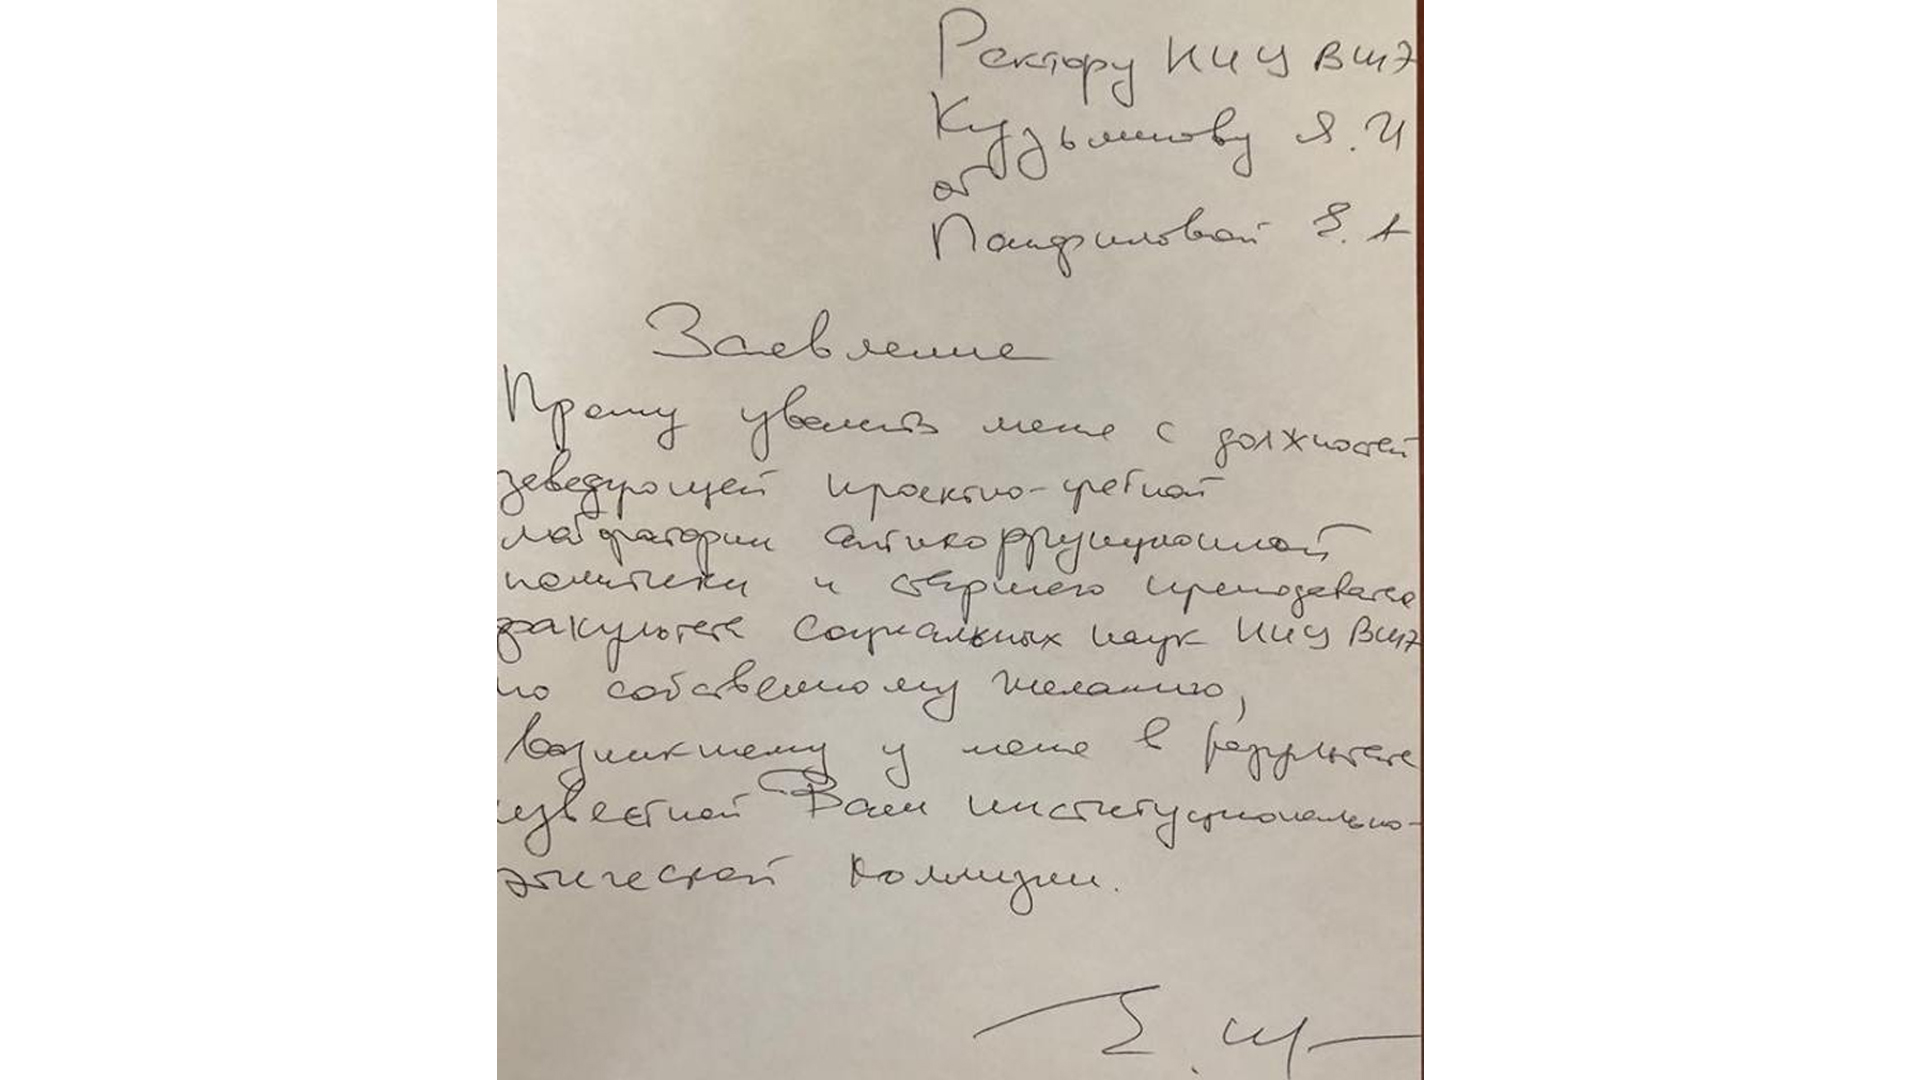 Ректору НИУ ВШЭ
Кузьминову Я.И
от
Панфиловой Е.А
Заявление
Прошу уволить меня с должностей
заведующей проектно-учебной
лаборатории антикоррупционной
политики и старшего преподавателя
факультета социальных наук НИУ ВШЭ
по собственному желанию,
возникшему у меня в результате
известной Вам институционально-
этической коллизии.